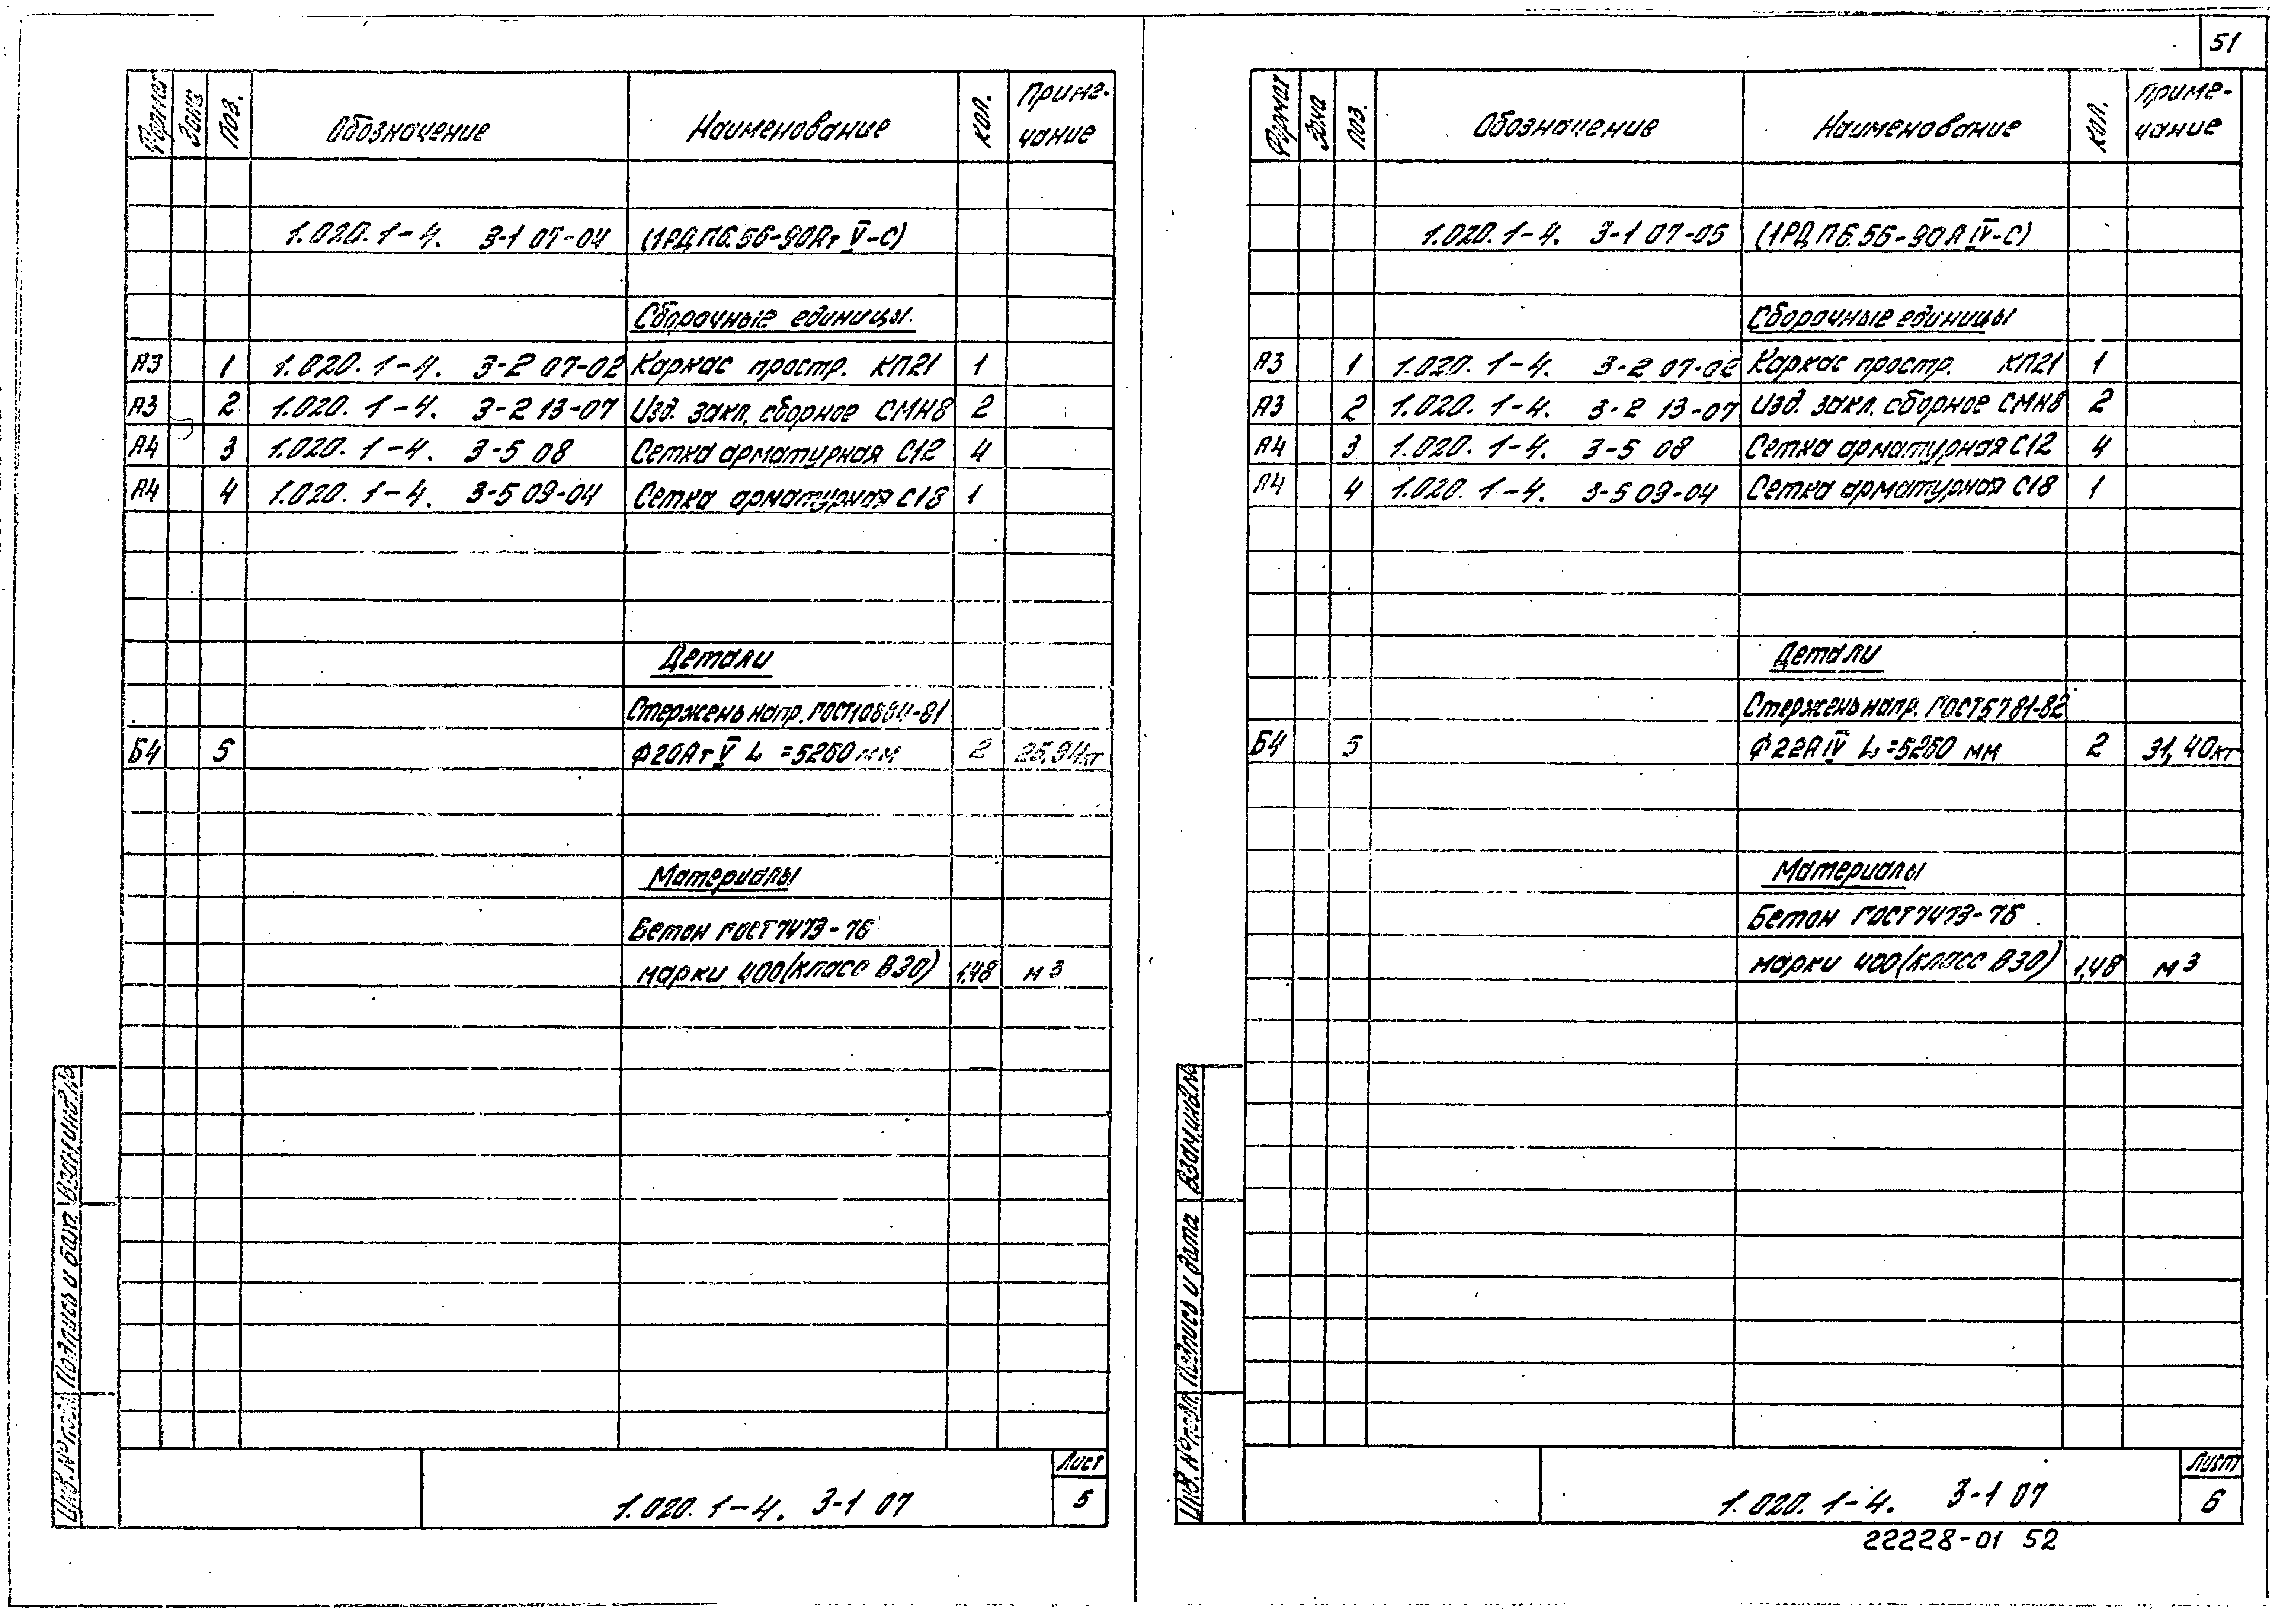 51
Формат Зона Поз. Обозначение Наименование Кол. Приме-
чание
1.020.1-4. 3-1 07-04 (1РДП6.56-90Ат V-С)
Сборочные единицы.
А3 1 1.020.1-4. 3-2 07-02 Каркас простр. КП21 1
А3 2 1.020.1-4. 3-2 13-07 Изд. закл. сборное СМН8 2
А4 3 1.020.1-4. 3-5 08 Сетка арматурная С12 4
А4 4 1.020.1-4. 3-5 09-04 Сетка арматурная С18 1
Детали
Стержень напр. ГОСТ10884-81
Б4 5 Ф20Ат V L=5260 мм 2 25,94кг
Материалы
Бетон ГОСТ7473-76
марки 400(класс В30) 1,48 м3
Взам.инв.№
Подпись и дата
Инв.№ подл.
1.020.1-4. 3-1 07
Лист
5
Формат Зона Поз. Обозначение Наименование Кол. Приме-
чание
1.020.1-4. 3-1 07-05 (1РДП6.56-90А IV-С)
Сборочные единицы
А3 1 1.020.1-4. 3-2 07-02 Каркас простр. КП21 1
А3 2 1.020.1-4. 3-2 13-07 Изд. закл. сборное СМН8 2
А4 3 1.020.1-4. 3-5 08 Сетка арматурная С12 4
А4 4 1.020.1-4. 3-5 09-04 Сетка арматурная С18 1
Детали
Стержень напр. ГОСТ5781-82
Б4 5 Ф22А IV L=5260 мм 2 31,40кг
Материалы
Бетон ГОСТ7473-76
марки 400(класс В30) 1,48 м3
Взам.инв.№
Подпись и дата
Инв.№ подл.
1.020.1-4. 3-1 07
Лист
6
22228-01 52